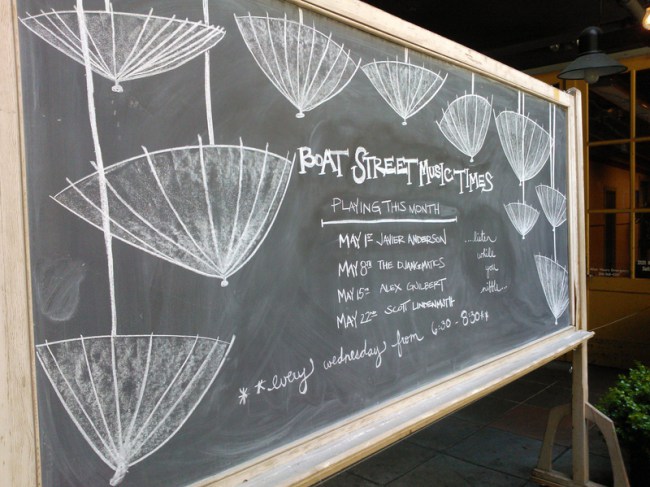 BOAT STREET MUSIC TIMES
PLAYING THIS MONTH
MAY 1ST JAVIER ANDERSON
MAY 8TH THE DJANGOMATICS
MAY 15TH ALEX GUILBERT
MAY 22ND SCOTT LINDENMUTH
....listen
while
you
nibble...
**every wednesday from 6:30 - 8:30**